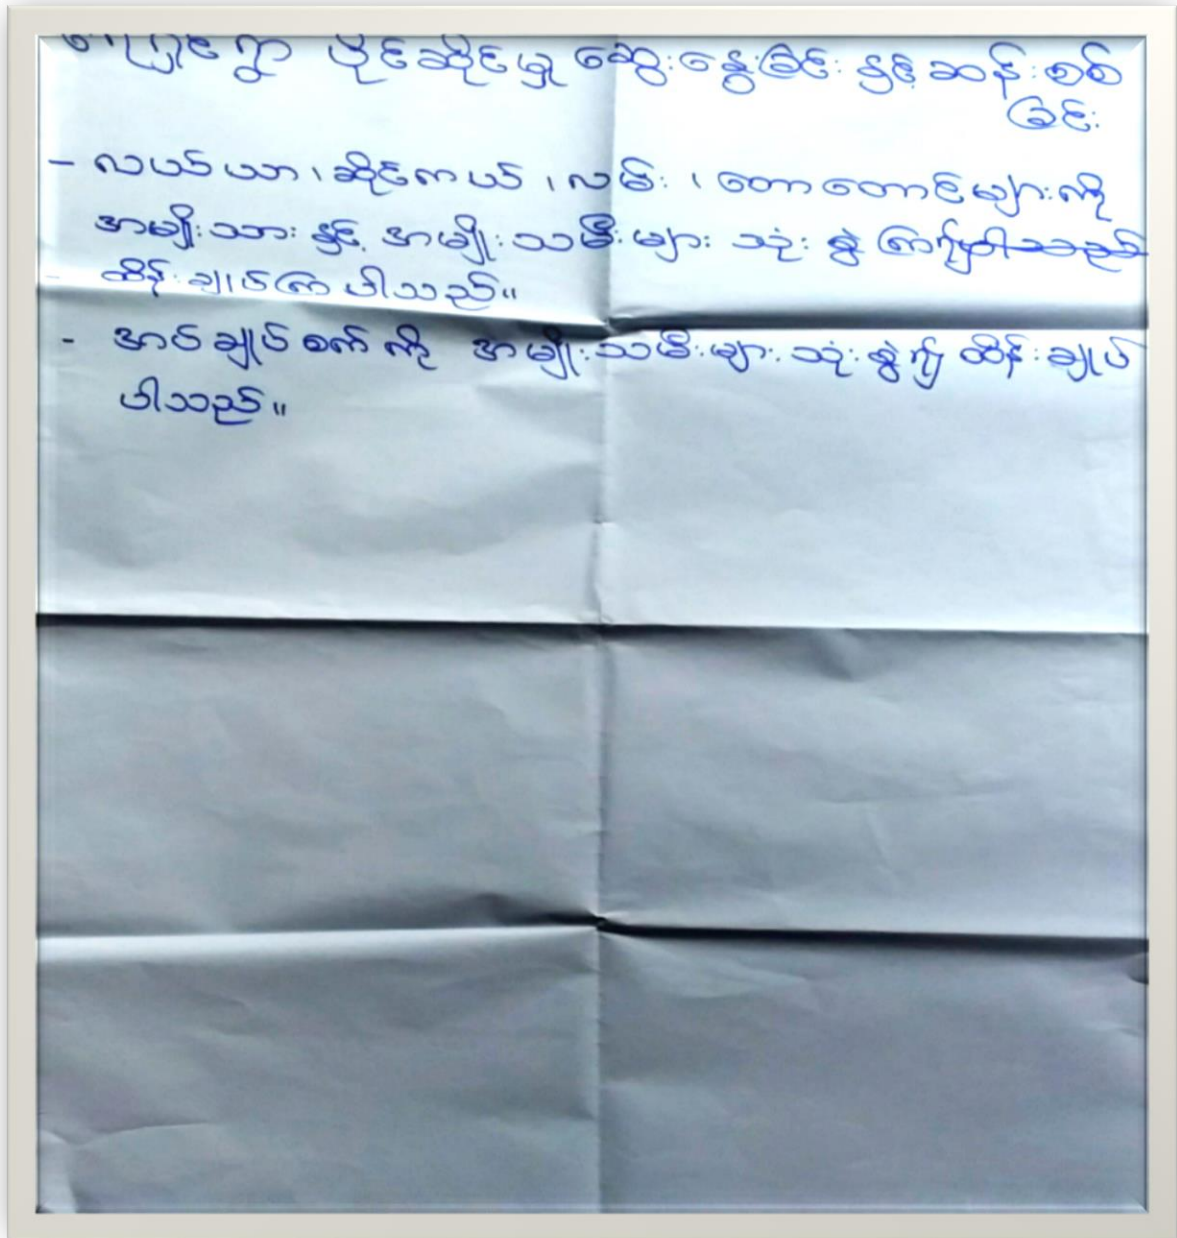 ရွာ ပိုင်ဆိုင်မှု ဆွေးနွေးခြင်း နှင့် ဆန်းစစ်
ခြင်း
- လယ်ယာ၊ ဆိုင်ကယ်၊ လမ်း၊ တောတောင်များကို
အမျိုးသား နှင့် အမျိုးသမီးများ သုံးစွဲ
- ထိန်းချုပ်ကြပါသည်။
- အပ်ချုပ်စက်ကို အမျိုးသမီးများ သုံးစွဲ၍ ထိန်းချုပ်
ပါသည်။